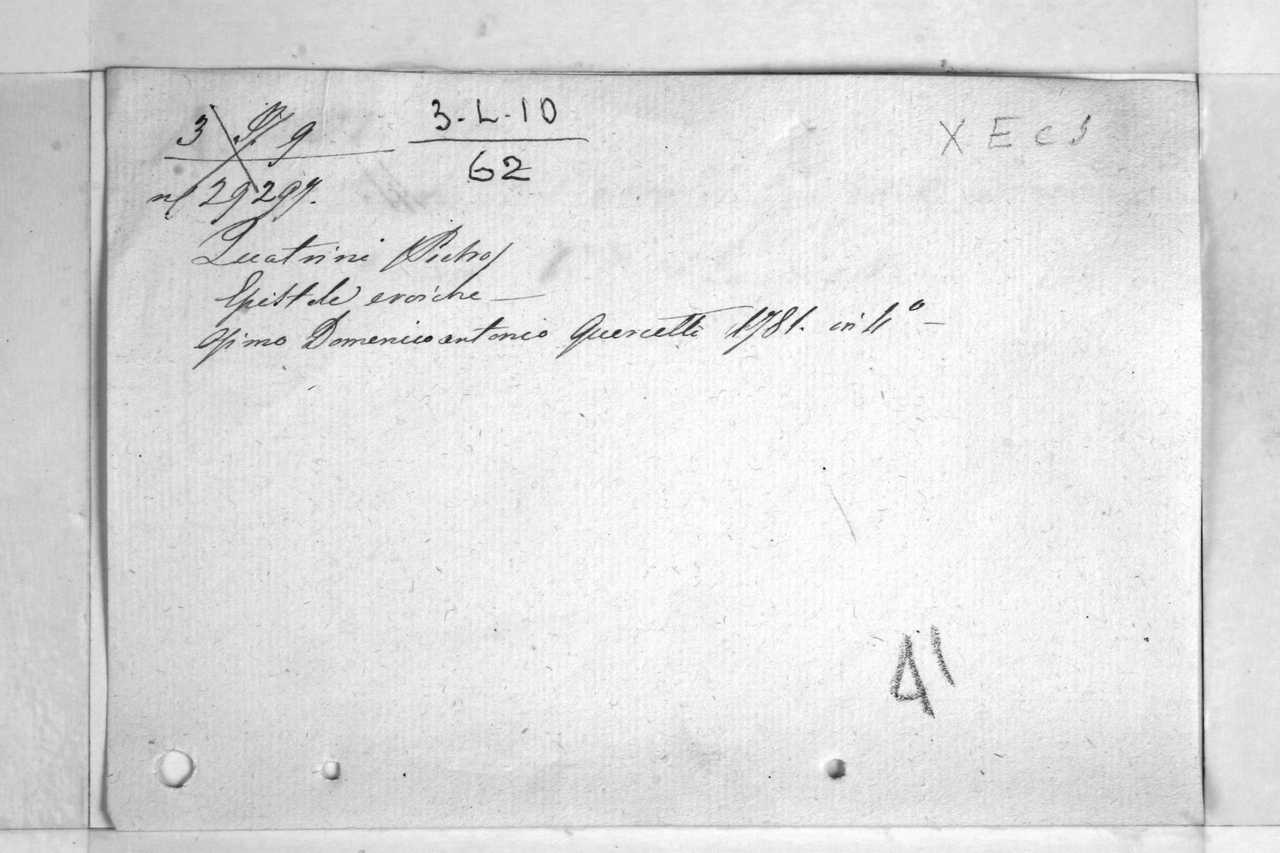 3 9
3-L-10
62
X E c 5
n 29297.
Quatrini (Pietro)
Epistole eroiche —
Osimo Domenicoantonio Quercetti 1781. in 4° —
41